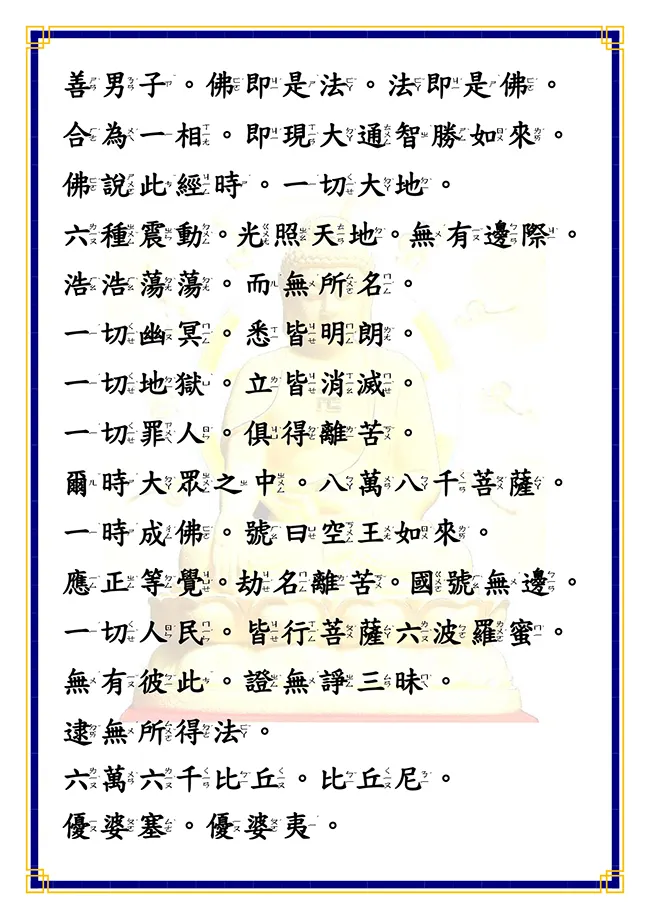 善男子。佛即是法。法即是佛。
合為一相。即現大通智勝如來。
佛說此經時。一切大地。
六種震動。光照天地。無有邊際。
浩浩蕩蕩。而無所名。
一切幽冥。悉皆明朗。
一切地獄。立皆消滅。
一切罪人。俱得離苦。
爾時大眾之中。八萬八千菩薩。
一時成佛。號曰空王如來。
應正等覺。劫名離苦。國號無邊。
一切人民。皆行菩薩六波羅蜜。
無有彼此。證無諍三昧。
逮無所得法。
六萬六千比丘。比丘尼。
優婆塞。優婆夷。